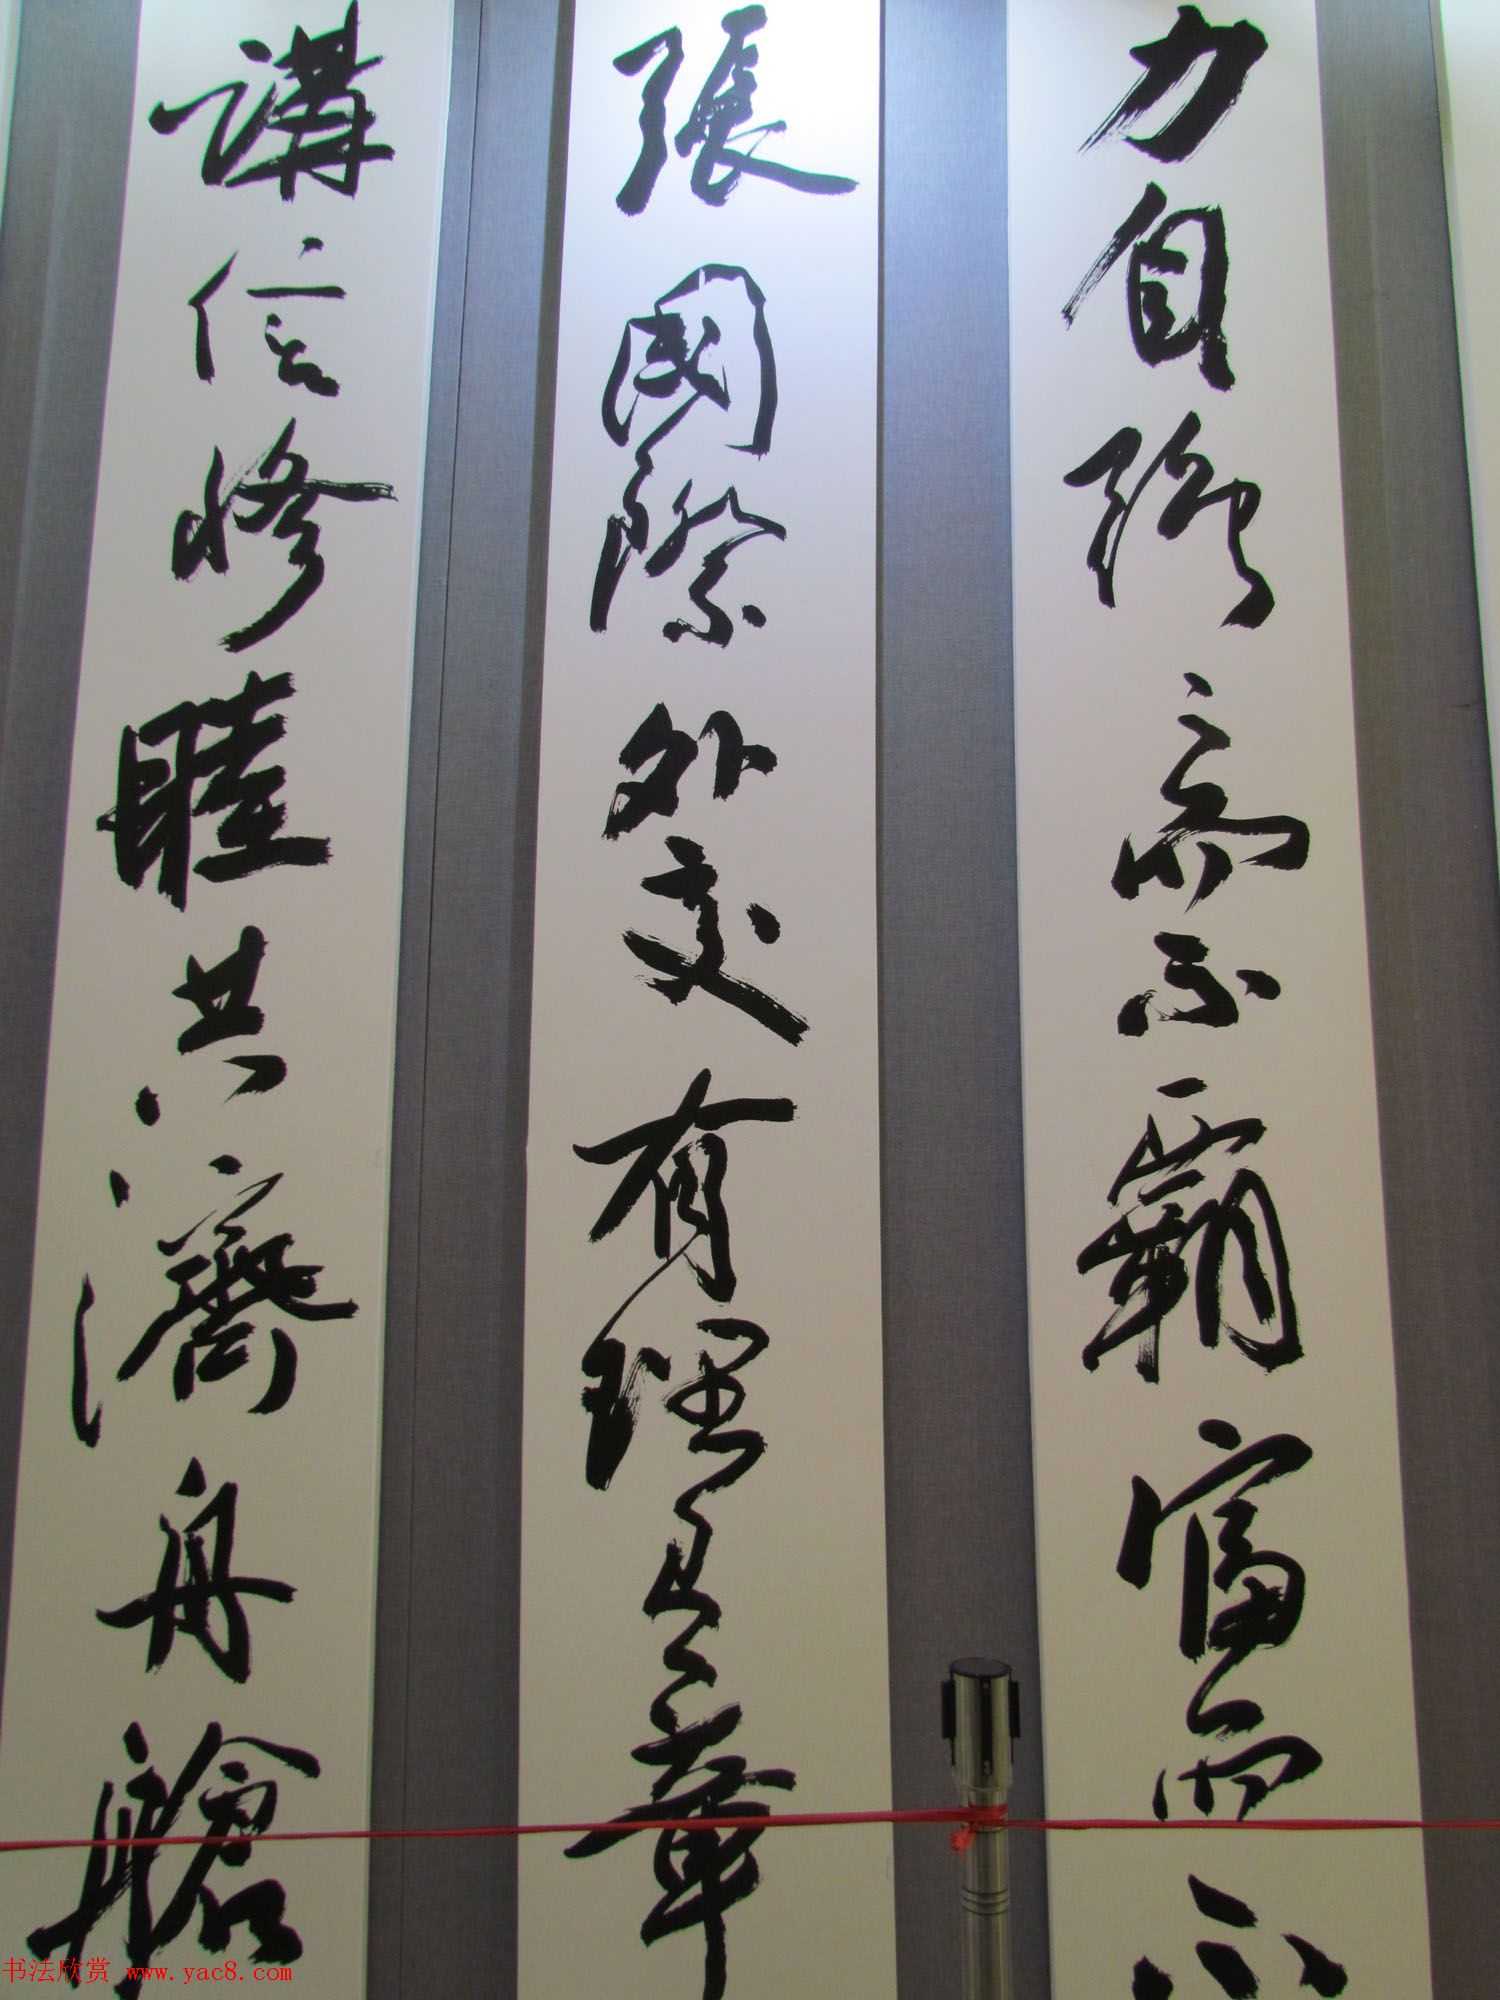 力自強而不霸富而不
張國際外交有理華
講信修睦共濟舟艙
书法欣赏 www.yac8.com